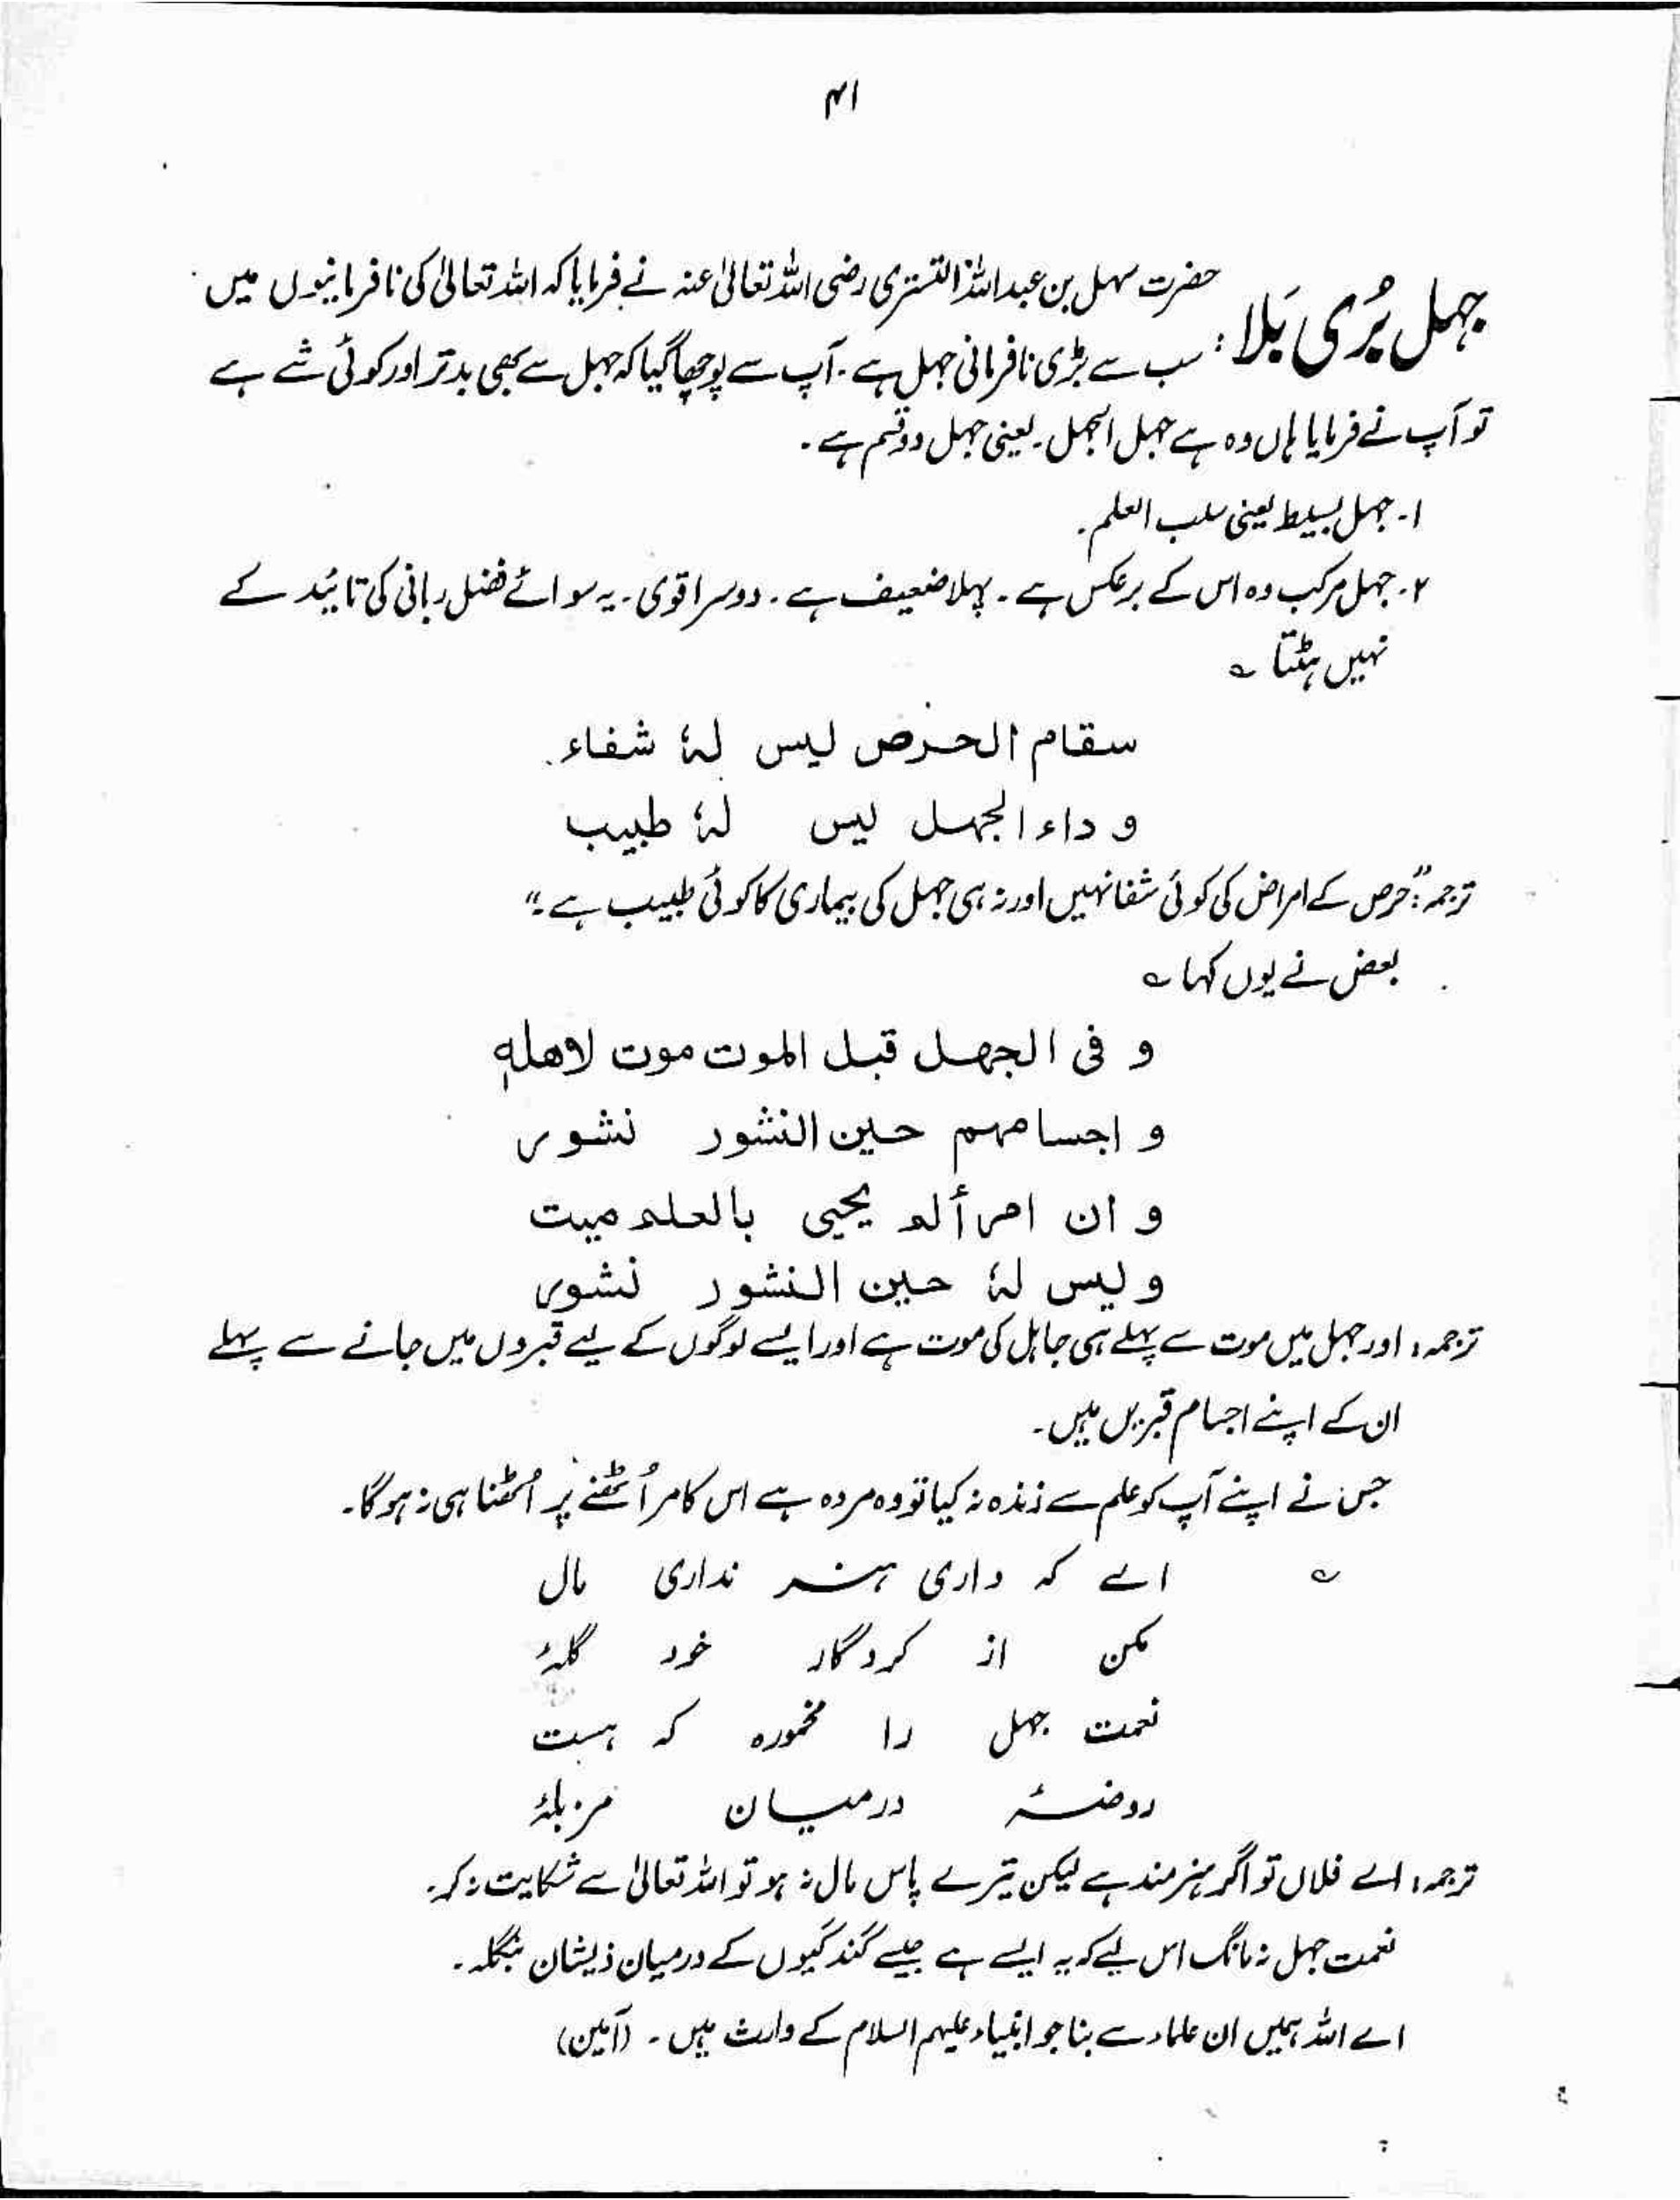 ۴۱
جہل بُری بَلا :
حضرت سہل بن عبداللہ التستری رضی اللہ تعالیٰ عنہ نے فرمایا کہ اللہ تعالیٰ کی نافرمانیوں میں
سب سے بڑی نافرمانی جہل ہے ۔ آپ سے پوچھا گیا کہ جہل سے بھی بدتر اور کوئی شے ہے
تو آپ نے فرمایا ہاں وہ ہے جہل الجہل ۔ یعنی جہل دو قسم ہے ۔
۱۔ جہل بسیط یعنی سلب العلم ۔
۲۔ جہل مرکب وہ اس کے برعکس ہے ۔ پہلا ضعیف ہے ۔ دوسرا قوی ۔ یہ سوائے فضل ربانی کی تائید کے
نہیں ہٹتا ؎
سقام الحرص لیس لہٗ شفاء
و داء الجہل لیس لہٗ طبیب
ترجمہ : "حرص کے امراض کی کوئی شفا نہیں اور نہ ہی جہل کی بیماری کا کوئی طبیب ہے ۔"
بعض نے یوں کہا ؎
و فی الجھل قبل الموت موت لاھلہٖ
و اجسامہم حین النشور نشور
و ان امرألم یحیی بالعلم میت
و لیس لہٗ حین النشور نشور
ترجمہ : اور جہل میں موت سے پہلے ہی جاہل کی موت ہے اور ایسے لوگوں کے لیے قبروں میں جانے سے پہلے
ان کے اپنے اجسام قبریں ہیں ۔
جس نے اپنے آپ کو علم سے زندہ نہ کیا تو وہ مردہ ہے اس کا مر اُٹھنے پر اُٹھنا ہی نہ ہو گا ۔
؎ اے کہ داری ہنر نداری مال
مکن از کردگار خود گلۂ
نعمت جہل را مخورہ کہ ہست
روضۂ درمیان مزبلۂ
ترجمہ : اے فلاں تو اگر ہنرمند ہے لیکن تیرے پاس مال نہ ہو تو اللہ تعالیٰ سے شکایت نہ کر ۔
نعمت جہل نہ مانگ اس لیے کہ یہ ایسے ہے جیسے گندگیوں کے درمیان ذیشان بنگلہ ۔
اے اللہ ہمیں ان علماء سے بنا جو انبیاء علیہم السلام کے وارث ہیں ۔ (آمین)